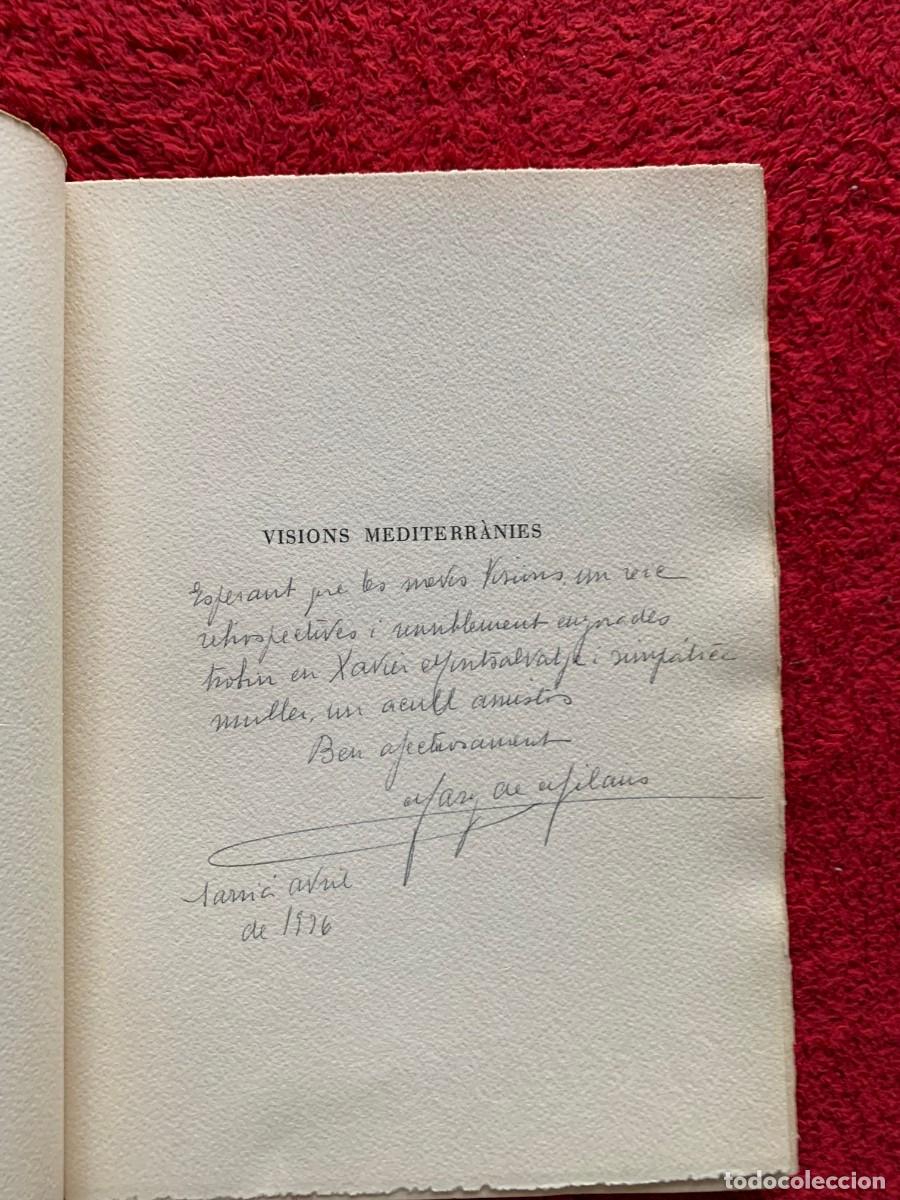 VISIONS MEDITERRÀNIES
Esperant que les meves Visions, un xic
retrospectives i sensiblement enyorades
trobin en Xavier Montsalvatje i simpàtica
muller, un acull amistós
Ben afectuosament
de Milans
Sarrià avril
de 1996
todocoleccion